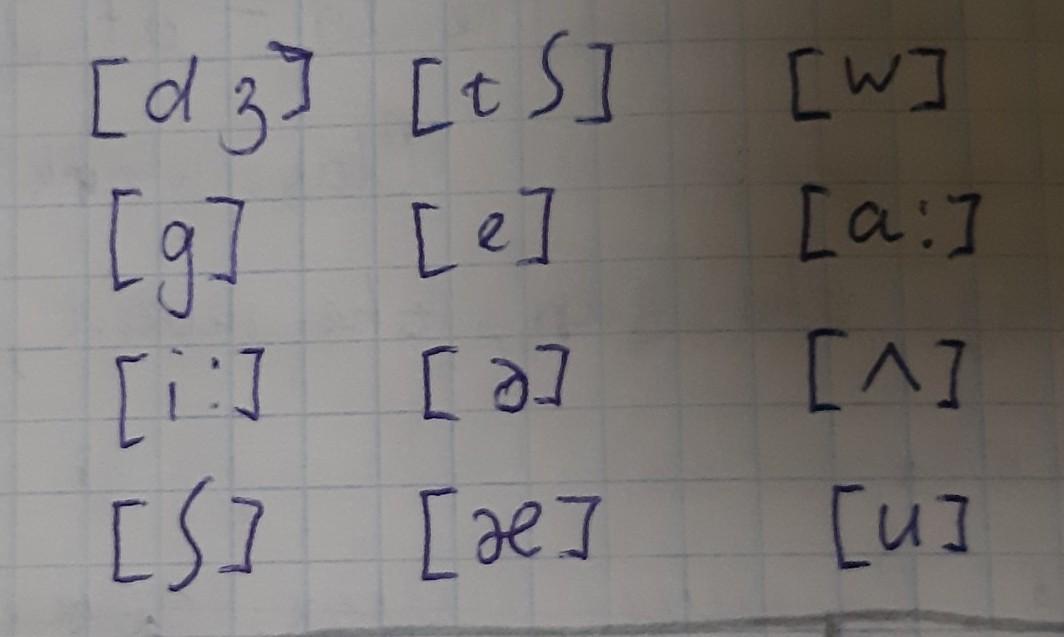 [dʒ] [tʃ] [w]
[g] [e] [a:]
[i:] [ə] [ʌ]
[ʃ] [æ] [u]